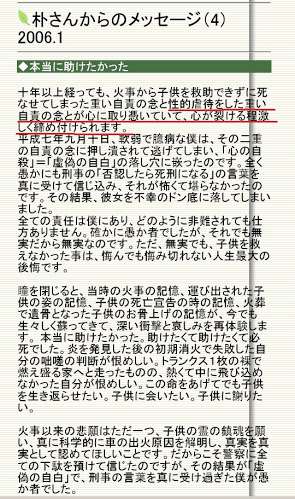 朴さんからのメッセージ(4)
2006.1
◆本当に助けたかった
十年以上経っても、火事から子供を救助できずに死
なせてしまった重い自責の念と性的虐待をした重い
自責の念とが心に取り憑いていて、心が裂ける程激
しく締め付けられます。
平成七年九月十日、軟弱で臆病な僕は、その二重
の自責の念に押し潰されて逃げてしまい、「心の自
殺」=「虚偽の自白」の落し穴に嵌ったのです。全く
愚かにも刑事の「否認したら死刑になる」の言葉を
真に受けて信じ込み、それが怖くて堪らなかったの
です。その結果、彼女を不幸のドン底に落してしまい
ました。
全ての責任は僕にあり、どのように非難されても仕
方ありません。確かに愚か者でしたが、それでも無
実だから無実なのです。ただ、無実でも、子供を救
えなかった事は、悔んでも悔み切れない人生最大の
後悔です。
瞳を閉じると、当時の火事の記憶、運び出された子
供の姿の記憶、子供の死亡宣告の時の記憶、火葬
で遺骨となった子供のお骨上げの記憶が、今でも
生々しく蘇ってきて、深い衝撃と哀しみを再体験しま
す。 本当に助けたかった。助けたくて助けたくて必
死でした。炎を発見した後の初期消火で失敗した自
分の咄嗟の判断が恨めしい。トランクス1枚の裸で
燃え盛る家へと走ったものの、熱くて中に飛び込め
なかった自分が恨めしい。この命をあげてでも子供
を生き返らせたい。子供に会いたい。子供に謝りた
い。
火事以来の悲願はただ一つ、子供の霊の鎮魂を願
い、真に科学的に車の出火原因を解明し、真実を真
実として認めてほしいことです。だからこそ警察に全
ての下駄を預けて信じたのですが、その結果が「虚
偽の自白」で、刑事の言葉を真に受け過ぎた僕が愚
か者でした。